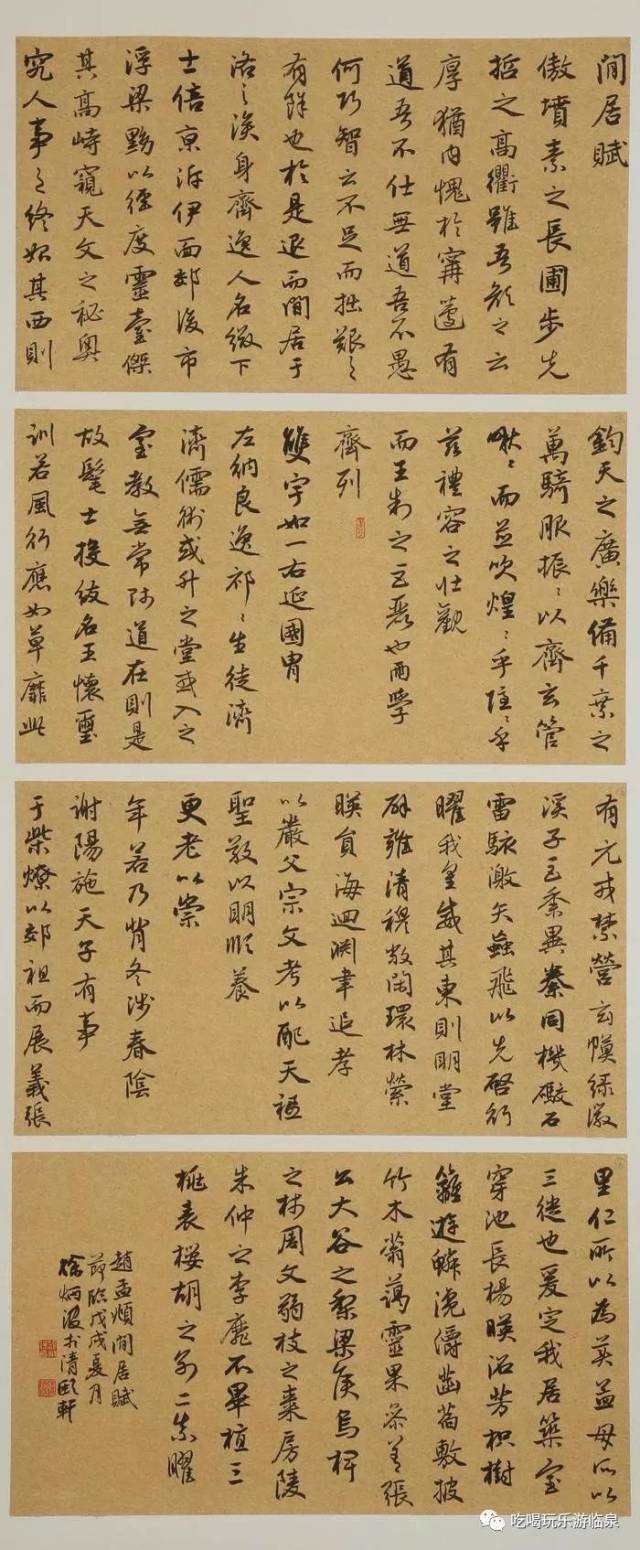 閒居賦
傲墳素之長圃步先
哲之高衢雖吾顏之云
厚猶内愧於甯蘧有
道吾不仕無道吾不愚
何巧智之不足而拙艱之
有餘也於是退而閒居于
洛之涘身齊逸人名綴下
士倍京泝伊面郊後市
浮梁黝以徑度靈臺傑
其高峙窺天文之秘奧
究人事之終始其西則
鈞天之廣樂備千乘之
萬騎服振〻以齊玄管
啾〻而並吹煌〻乎隱〻乎
茲禮容之壯觀
而王制之巨麗也兩學
齊列
雙宇如一右延國胄
左納良逸祁〻生徒濟
濟儒術或升之堂或入之
室教無常師道在則是
故髦士投紱名王懷璽
訓若風行應如草靡此
有元戎禁營玄幙綠徽
溪子巨黍異絭同機礮石
雷駭激矢蝱飛以先啓行
曜我皇威其東則明堂
辟雍清穆敞閑環林縈
暎負海迴淵聿追孝
以嚴父宗文考以配天袛
聖敬以明順養
更老以崇
年若乃背冬涉春陰
謝陽施天子有事
于柴燎以郊祖而展義張
里仁所以為美孟母所以
三徙也爰定我居築室
穿池長楊暎沼芳枳樹
籬遊鱗瀺灂菡萏敷披
竹木蓊藹靈果參差張
公大谷之梨梁侯烏椑
之柿周文弱枝之棗房陵
朱仲之李靡不畢植三
桃表櫻胡之別二柰曜
趙孟頫閒居賦
節臨戊戌夏月
徐炳於清頤軒
吃喝玩乐游临泉